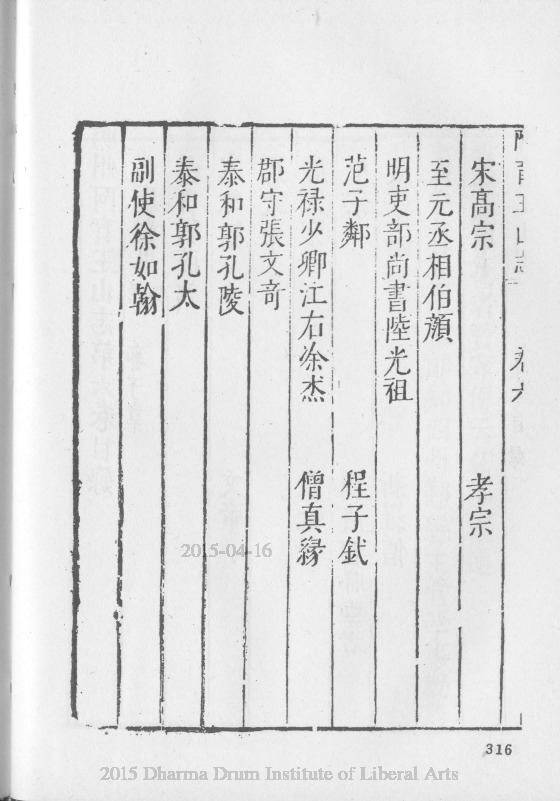 阿育王山志 卷六
宋高宗 孝宗
至元丞相伯顏
明吏部尚書陸光祖
范子鄰 程子鈇
光祿少卿江右徐杰 僧真緣
郡守張文奇
泰和郭孔陵
泰和郭孔太
副使徐如翰
2015-04-16
316
2015 Dharma Drum Institute of Liberal Arts